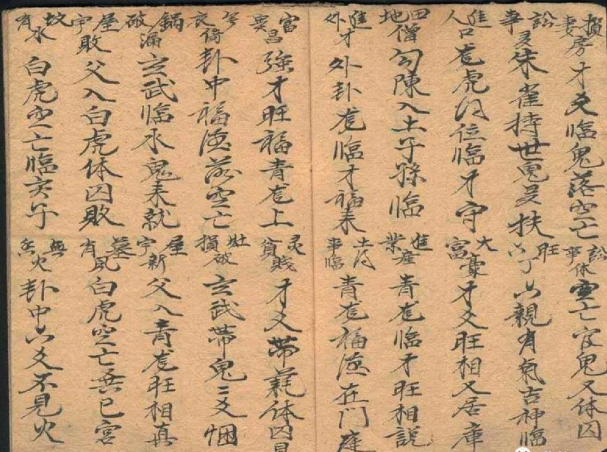 損妻房才爻臨鬼落空亡
訟事休空亡官鬼又体囚
訟事朱雀持世鬼爻扶
旺六親有氣吉神臨
進人口龙虎位臨才守
大富豪才爻旺相又居庫
田地僧勾陳入土子孫臨
進業産青龙臨才旺相說
進外才外卦龙臨才福來
青龙福德在門庭
富貴昌強才旺福青龙上
貧賤才爻帶耗体囚
卦中福德落空亡
灶損破玄武帶鬼三爻悃
鍋破漏玄武臨水鬼來就
屋宇新父入青龙旺相真
屋宇敗父入白虎体囚敗
墓有風白虎空亡無巳宮
坟有水白虎空亡臨亥子
無火卦中六爻不見火